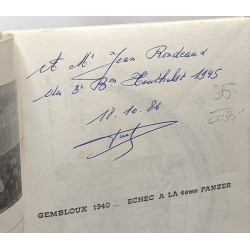 et Mr Jean Rondeaux
du 3e Bon Houthulst 1945
18.10.86
35
GEMBLOUX 1940... ECHEC A LA 4ème PANZER